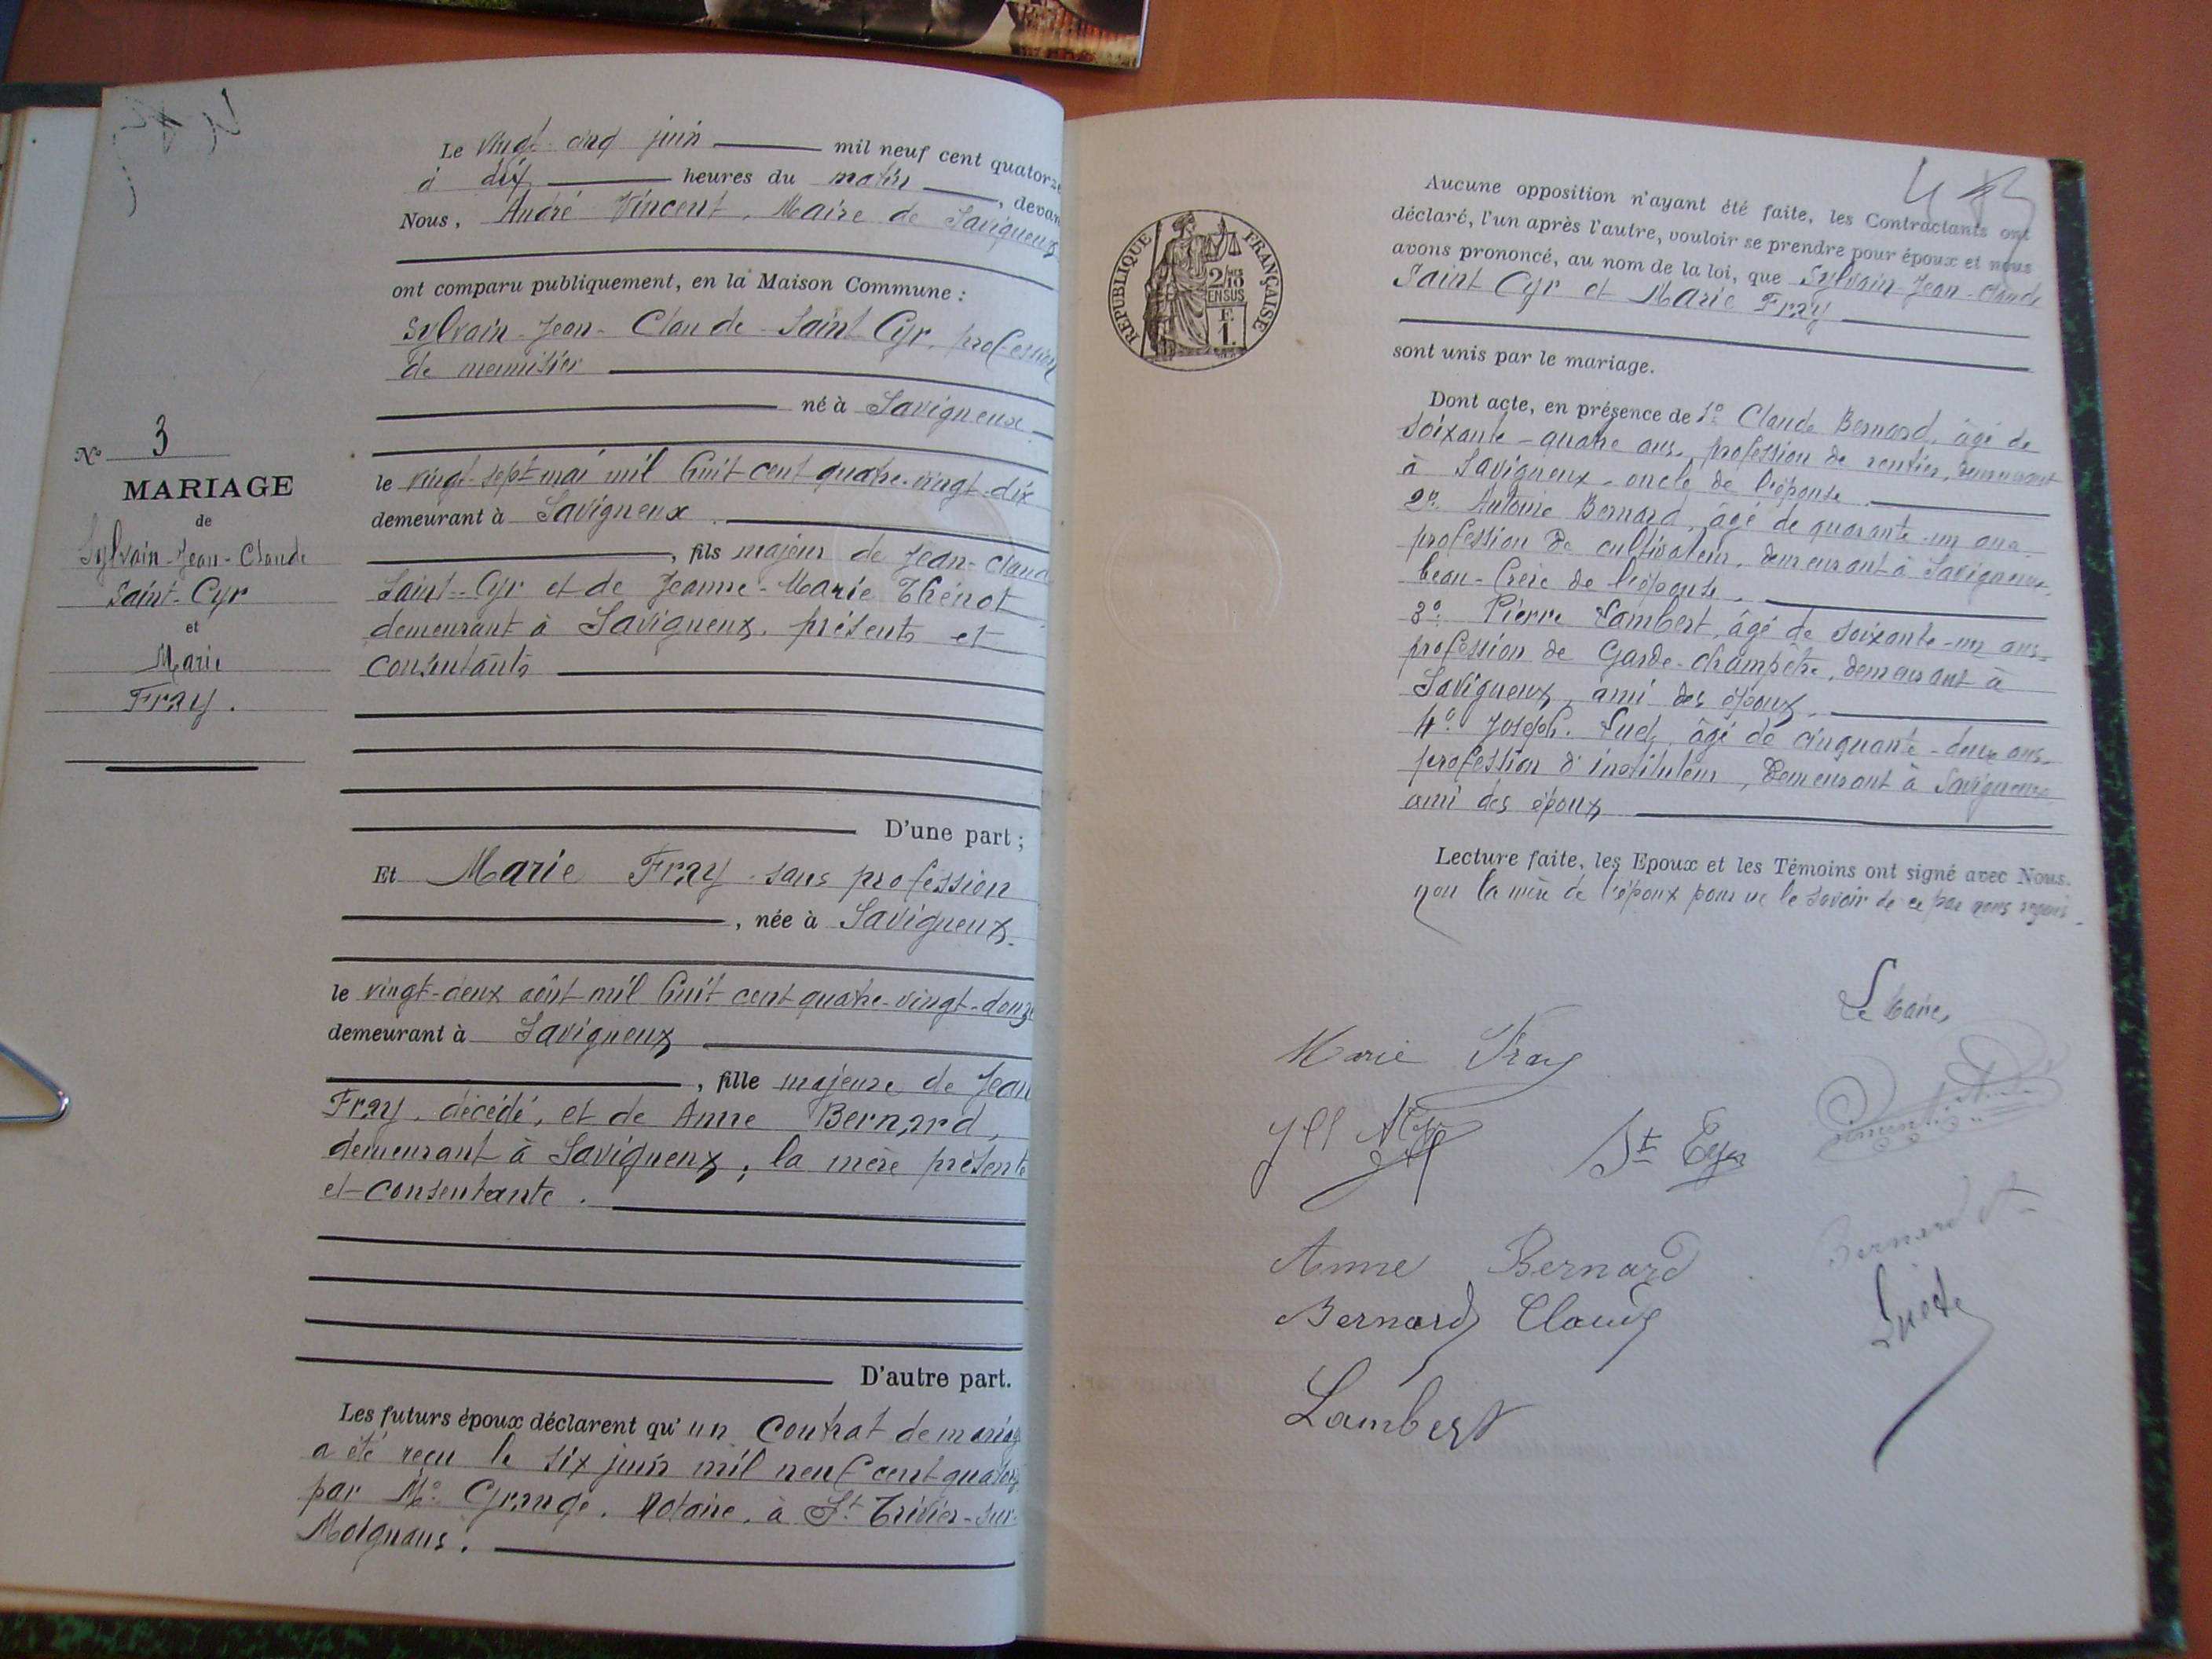 Le vingt-cinq juin mil neuf cent quatorze
à dix heures du matin, devan
Nous, André Vincent, Maire de Savigneux
ont comparu publiquement, en la Maison Commune :
Sylvain-Jean-Claude Saint-Cyr, profession
de menuisier
né à Savigneux
le vingt-sept mai mil huit cent quatre-vingt-dix
demeurant à Savigneux
, fils majeur de Jean-Claud
Saint-Cyr et de Jeanne-Marie Thénot
demeurant à Savigneux, présents et
consentants
D'une part ;
Et Marie Fray sans profession
, née à Savigneux
le vingt-deux août mil huit cent quatre-vingt-douze
demeurant à Savigneux
, fille majeure de Jean
Fray, décédé, et de Anne Bernard,
demeurant à Savigneux, la mère présente
et consentante.
D'autre part.
Les futurs époux déclarent qu'un contrat de mariage
a été reçu le six juin mil neuf cent quatorze
par Me Grange, Notaire, à St Trivier-sur-
Moignans.
No 3
MARIAGE
de
Sylvain-Jean-Claude
Saint-Cyr
et
Marie
Fray.
RÉPUBLIQUE FRANÇAISE
2/10
EN SUS
F.
1.
Aucune opposition n'ayant été faite, les Contractants ont
déclaré, l'un après l'autre, vouloir se prendre pour époux et nous
avons prononcé, au nom de la loi, que Sylvain-Jean-Claude
Saint Cyr et Marie Fray
sont unis par le mariage.
Dont acte, en présence de 1o Claude Bernard, âgé de
soixante-quatre ans, profession de rentier, demeurant
à Savigneux, oncle de l'épouse.
2o Antoine Bernard, âgé de quarante-un ans,
profession de cultivateur, demeurant à Savigneux,
beau-frère de l'épouse.
3o Pierre Lambert, âgé de soixante-un ans,
profession de Garde-champêtre, demeurant à
Savigneux, ami des époux.
4o Joseph, âgé de cinquante-deux ans,
profession d'instituteur, demeurant à Savigneux
ami des époux
Lecture faite, les Epoux et les Témoins ont signé avec Nous.
non la mère de l'époux pour ne le savoir de ce par nous requis.
Le Maire,
Marie Fray
St Cyr
Anne Bernard
Bernard A
Bernard Claude
Lambert